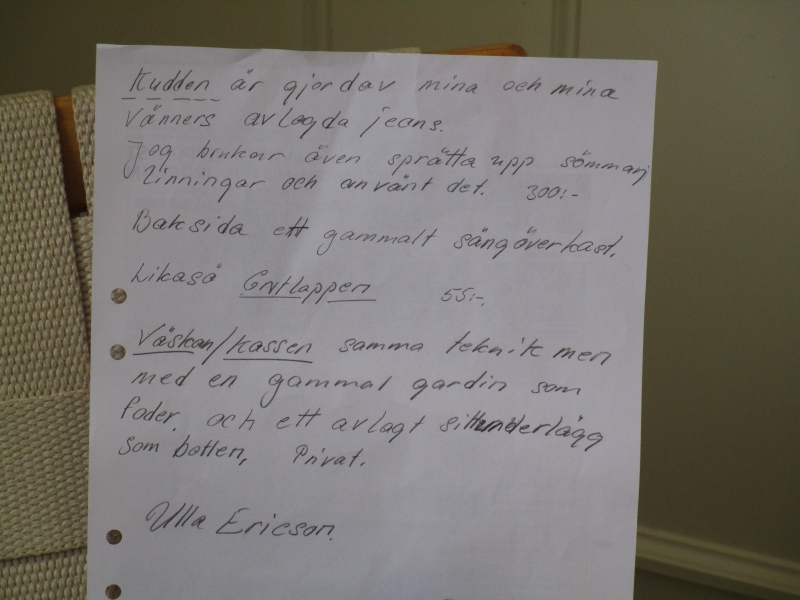 Kudden är gjord av mina och mina
vänners avlagda jeans.
Jag brukar även sprätta upp sömmar,
linningar och använt det. 300:-
Baksida ett gammalt sängöverkast.
Likaså Grytlappen 55:-.
Väskan/Kassen samma teknik men
med en gammal gardin som
foder, och ett avlagt sittunderlägg
som botten, Privat.
Ulla Ericson.